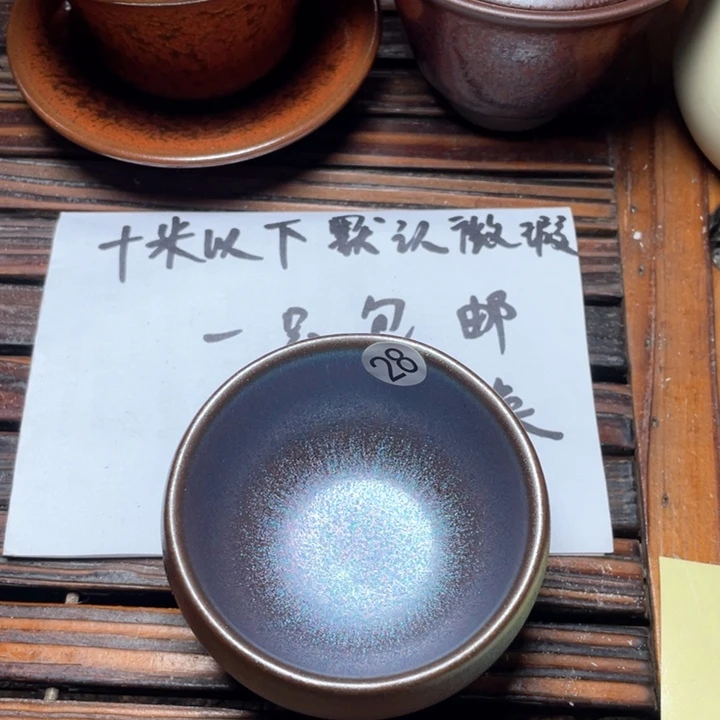 十米以下默认微瑕
一只包邮
28